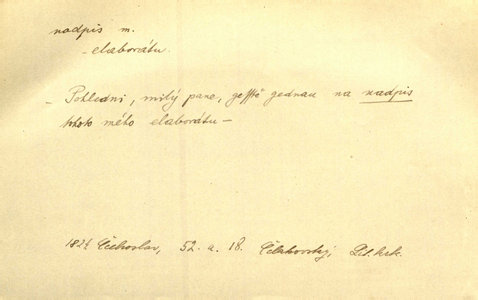 nadpis m.
- elaborátu.
- Pohledni, milý pane, gesstě gednau na nadpis
tohoto mého elaborátu -
1824 Čechoslav, 52. a. 18. Čelakovský, Lit. krk.